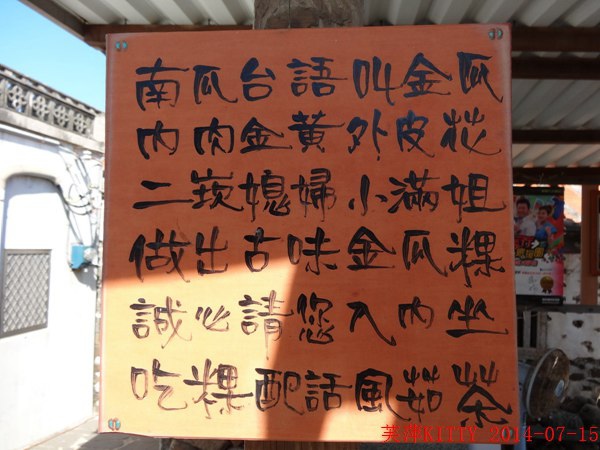 南瓜台語叫金瓜
內肉金黃外皮花
二崁媳婦小滿姐
做出古味金瓜粿
誠心請您入內坐
吃粿配話風茹茶
芙渖KITTY 2014-07-15